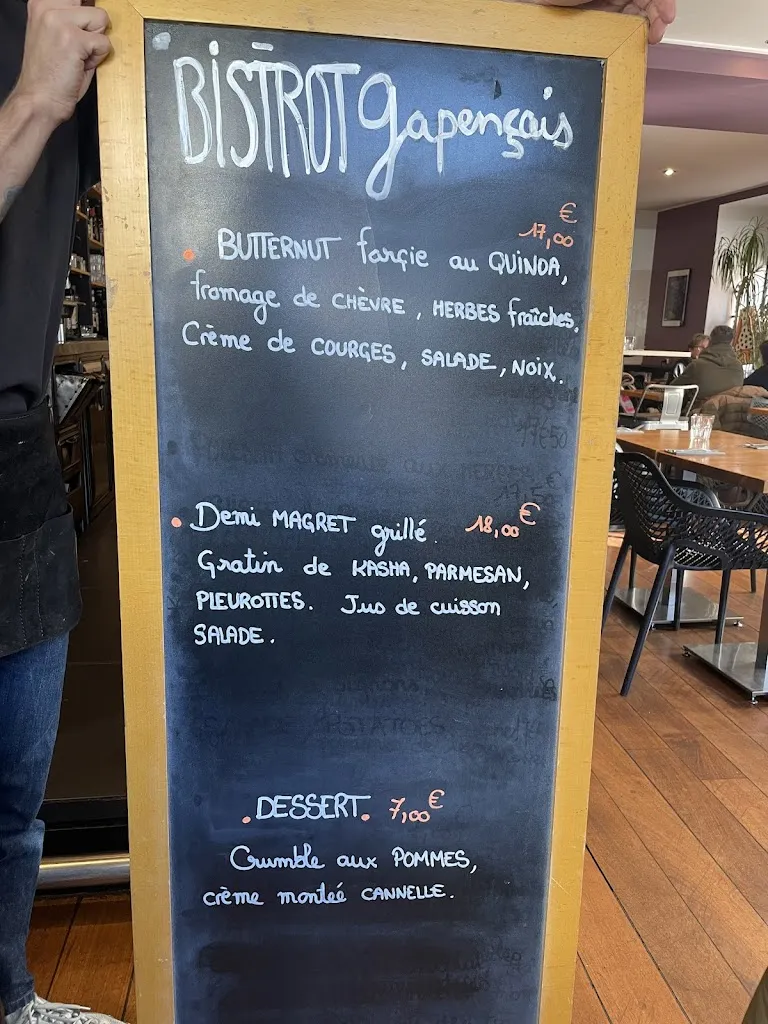 BISTROT gapençais
17,00 €
• BUTTERNUT farçie au QUINOA,
fromage de CHÈVRE, HERBES fraîches.
Crème de COURGES, SALADE, NOIX.
• Demi MAGRET grillé. 18,00 €
Gratin de KASHA, PARMESAN,
PLEUROTTES. Jus de cuisson
SALADE.
• DESSERT • 7,00 €
Crumble aux POMMES,
crème montéé CANNELLE.